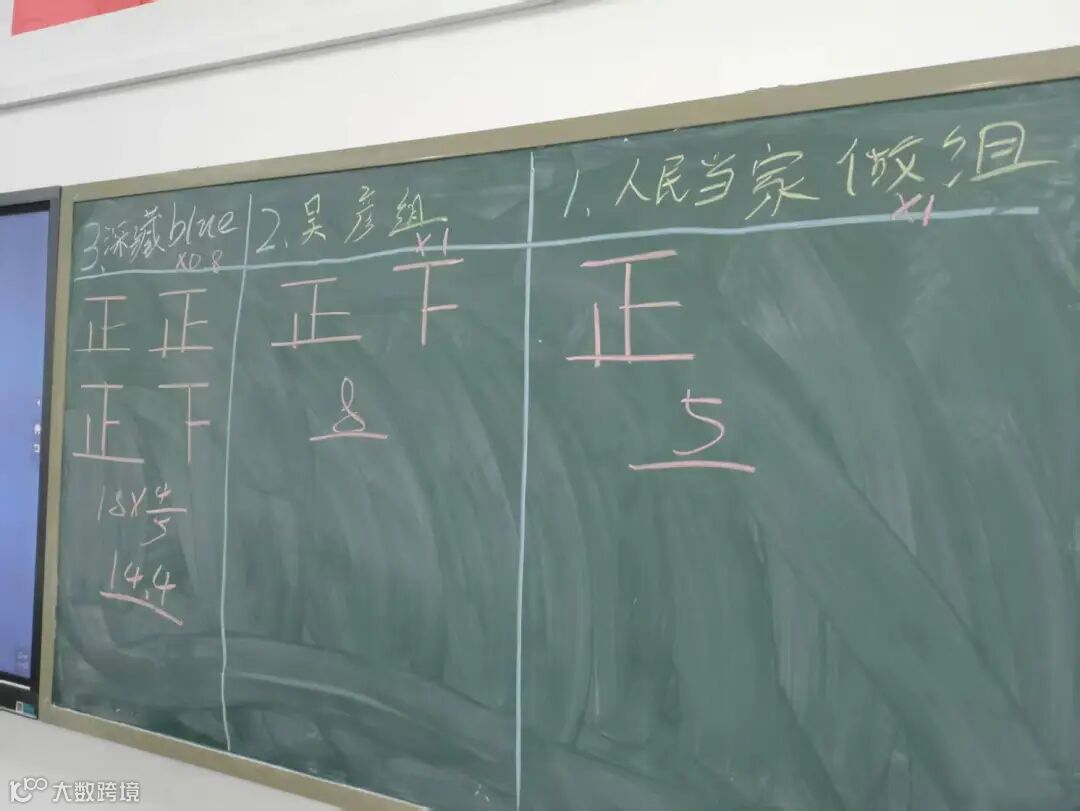 3.深藏blue
×0.8
正 正
正 下
18×4/5
14.4
2、吴彦组
×1
正 下
8
1、人民当家做组
×1
正
5
大数跨境